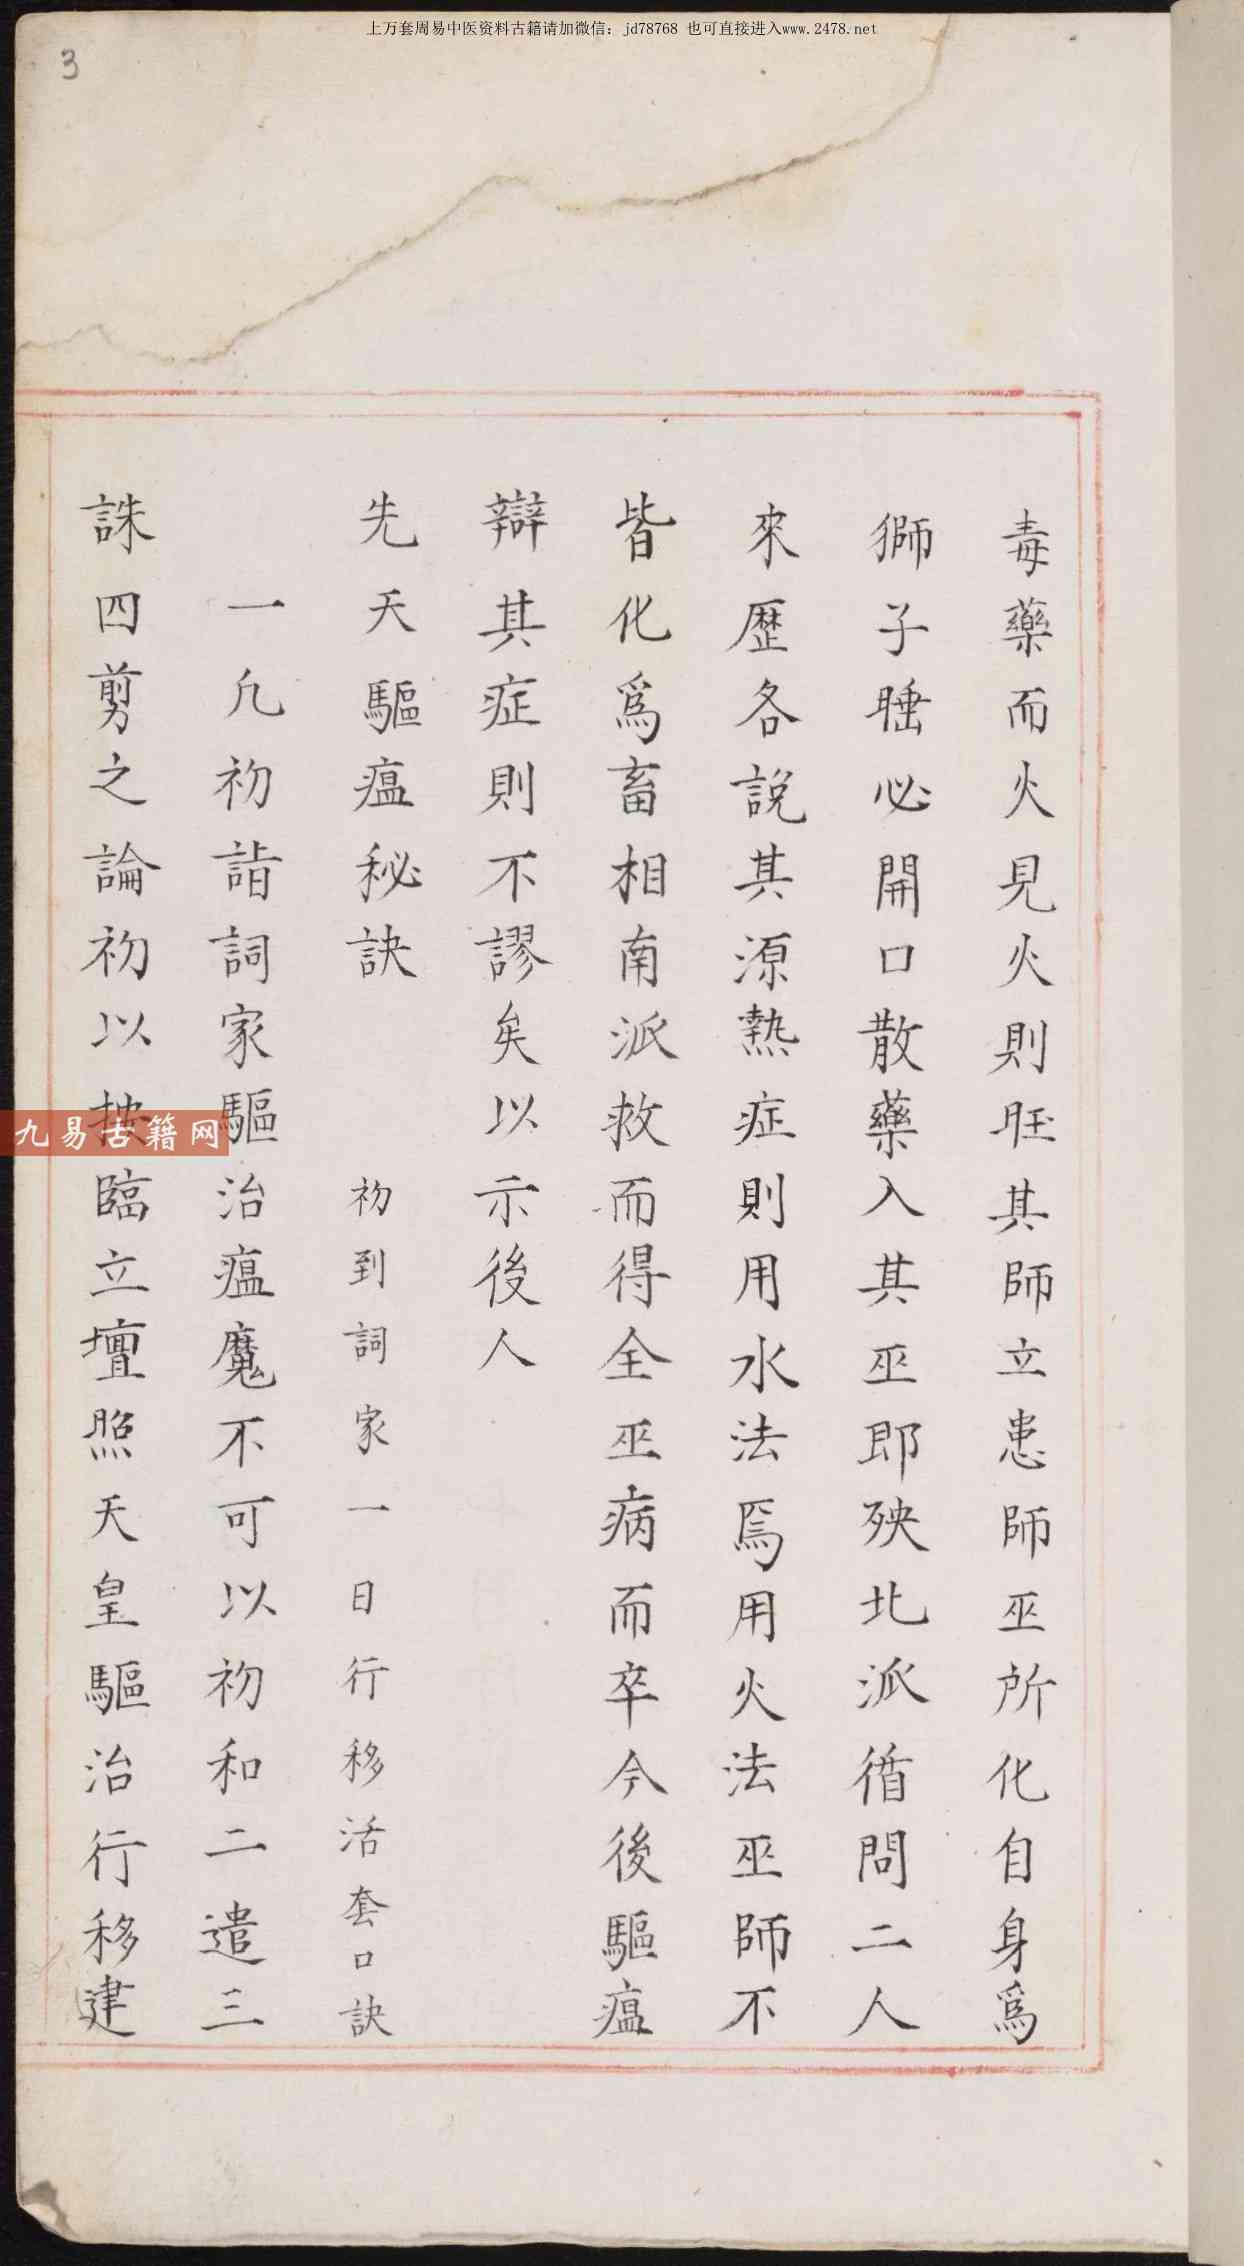 上万套周易中医资料古籍请加微信：jd78768 也可直接进入www.2478.net
3
毒藥而火見火則旺其師立患師巫所化自身為
獅子睡必開口散藥入其巫即殃北派循問二人
來歷各說其源熱症則用水法焉用火法巫師不
皆化爲畜相南派救而得全巫病而卒今後驅瘟
辯其症則不謬矣以示後人
先天驅瘟秘訣 初到詞家一日行移活套口訣
一凡初詣詞家驅治瘟魔不可以初和二遣三
誅四剪之論初以按臨立壇照天皇驅治行移建
九易古籍网